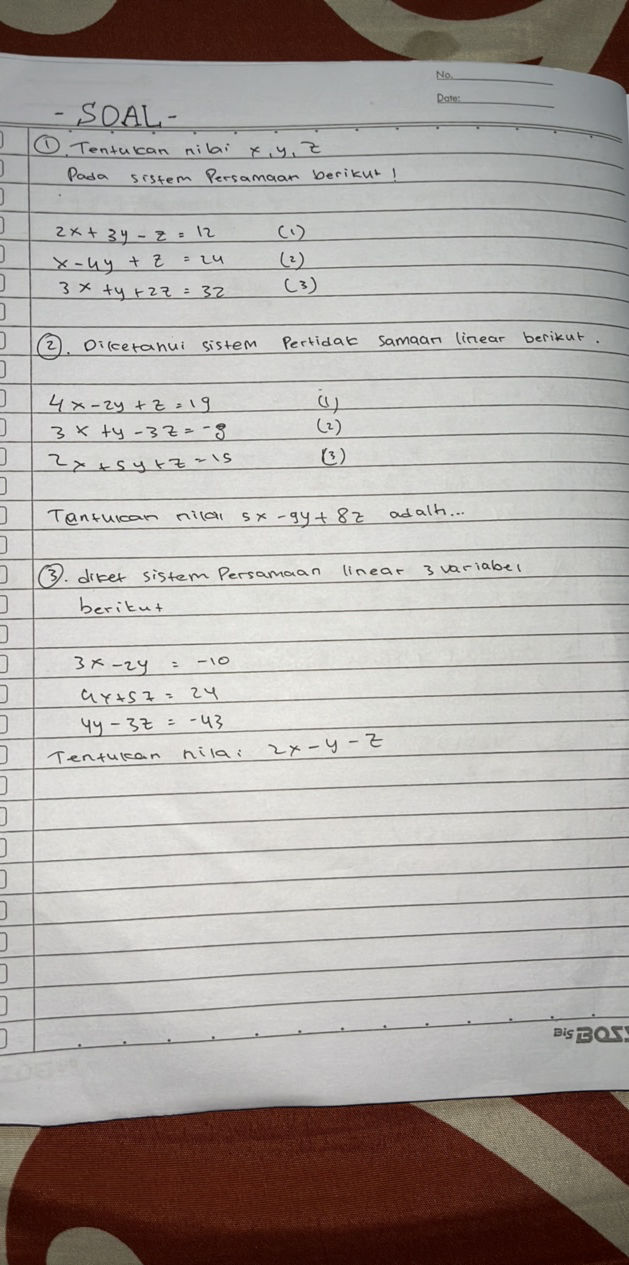 No.
Date:
- SOAL -
①. Tentukan nilai x, y, z
Pada sistem Persamaan berikut!
2x + 3y - z = 12 (1)
x - 4y + z = 24 (2)
3x + y + 2z = 32 (3)
②. Diketahui sistem Pertidak samaan linear berikut.
4x - 2y + z = 19 (1)
3x + y - 3z = -8 (2)
2x + 5y + z = 15 (3)
Tantukan nilai 5x - 9y + 8z adalh...
③. diket sistem Persamaan linear 3 variabel
berikut
3x - 2y = -10
4x + 5z = 24
4y - 3z = -43
Tentukan nilai 2x - y - z